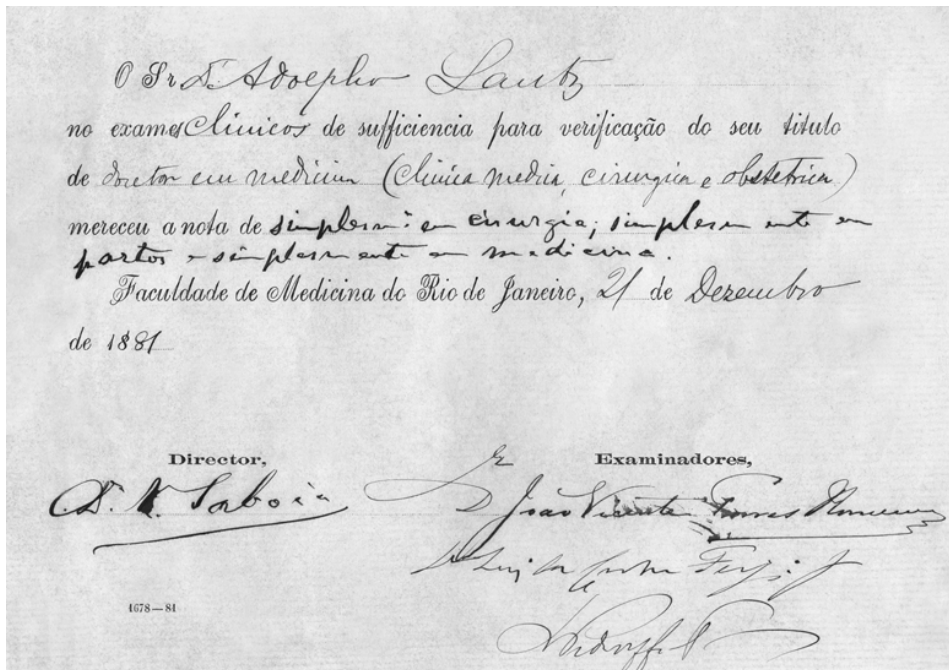 O Sr. Dr. Adolpho Lutz
no exames Clinicos de sufficiencia para verificação do seu titulo
de doutor em medicina (Clinica medica, cirurgica e obstetrica)
mereceu a nota de simplesm: em cirurgia; simplesmente em
partos e simplesmente em medicina.
Faculdade de Medicina do Rio de Janeiro, 21 de Dezembro
de 1881
Director,
Dr. V. Saboia
Examinadores,
Dr João Vicente Torres Homem
1678—81